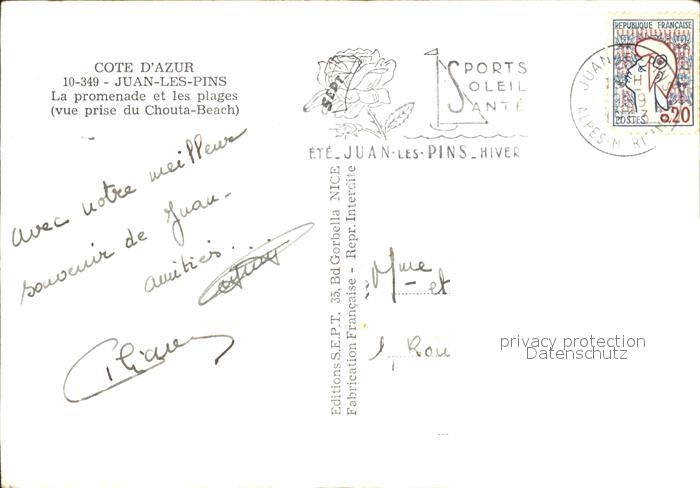 COTE D'AZUR
10-349 - JUAN-LES-PINS
La promenade et les plages
(vue prise du Chouta-Beach)
SEPT
SPORTS
SOLEIL
SANTÉ
ÉTÉ_JUAN-LES-PINS_HIVER
REPUBLIQUE FRANÇAISE
POSTES 0,20
JUAN
ALPES-M RI
avec notre meilleur
souvenir de Juan-
amitiés...
Editions S.E.P.T. 35, Bd Gorbella NICE
Fabrication Française - Repr. Interdite
Mme et
privacy protection
Datenschutz